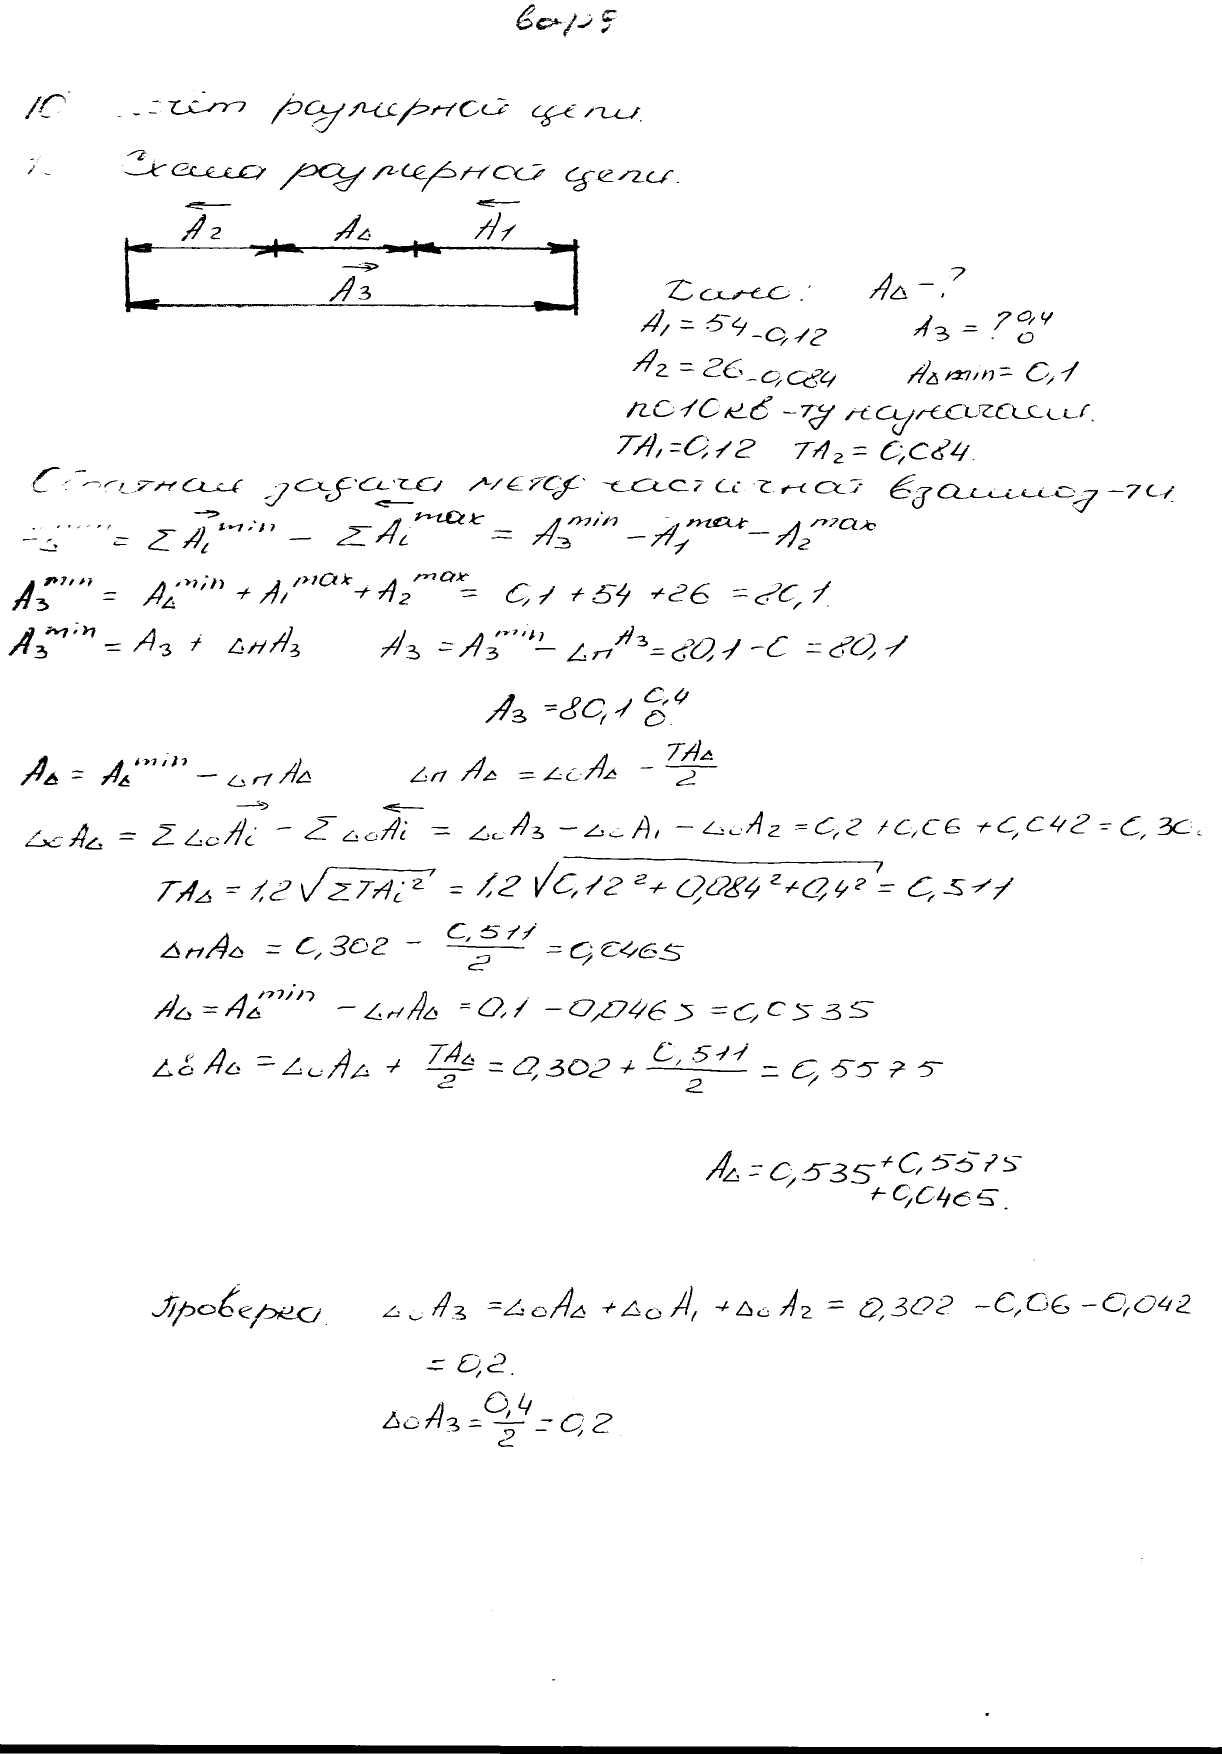 вар 5
10 счёт размерной цепи.
Схема размерной цепи.
A2 AΔ A1
A3
Дано: AΔ - ?
A1 = 54 -0,12 A3 = ? 0,4 0
A2 = 26 -0,084 AΔ min = 0,1
по 10 кв-ту назначаем.
TA1 = 0,12 TA2 = 0,084.
Обратная задача метод частичной взаимоз-ти.
= Σ Ai min - Σ Ai max = A3 min - A1 max - A2 max
A3 min = AΔ min + A1 max + A2 max = 0,1 + 54 + 26 = 80,1.
A3 min = A3 + ΔнA3 A3 = A3 min - ΔнA3 = 80,1 - 0 = 80,1
A3 = 80,1 0,4 0.
AΔ = AΔ min - ΔнAΔ ΔнAΔ = ΔoAΔ - TAΔ/2
ΔoAΔ = Σ ΔoAi - Σ ΔoAi = ΔoA3 - ΔoA1 - ΔoA2 = 0,2 + 0,06 + 0,042 = 0,30
TAΔ = 1,2 √ΣTAi² = 1,2 √0,12² + 0,084² + 0,4² = 0,511
ΔнAΔ = 0,302 - 0,511/2 = 0,0465
AΔ = AΔ min - ΔнAΔ = 0,1 - 0,0465 = 0,0535
ΔвAΔ = ΔoAΔ + TAΔ/2 = 0,302 + 0,511/2 = 0,5575
AΔ = 0,535 +0,5575 +0,0465.
Проверка ΔoA3 = ΔoAΔ + ΔoA1 + ΔoA2 = 0,302 - 0,06 - 0,042
= 0,2.
ΔoA3 = 0,4/2 = 0,2